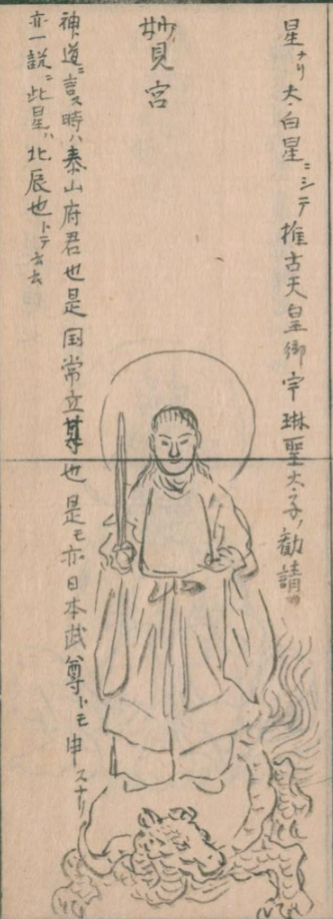 星ナリ太白星ニシテ推古天皇御宇琳聖太子ノ勧請
妙見宮
神道ニ言ス時ハ泰山府君也是国常立尊也是モ亦日本武尊トモ申スナリ
亦一説ニ此星ハ北辰也トテ云云